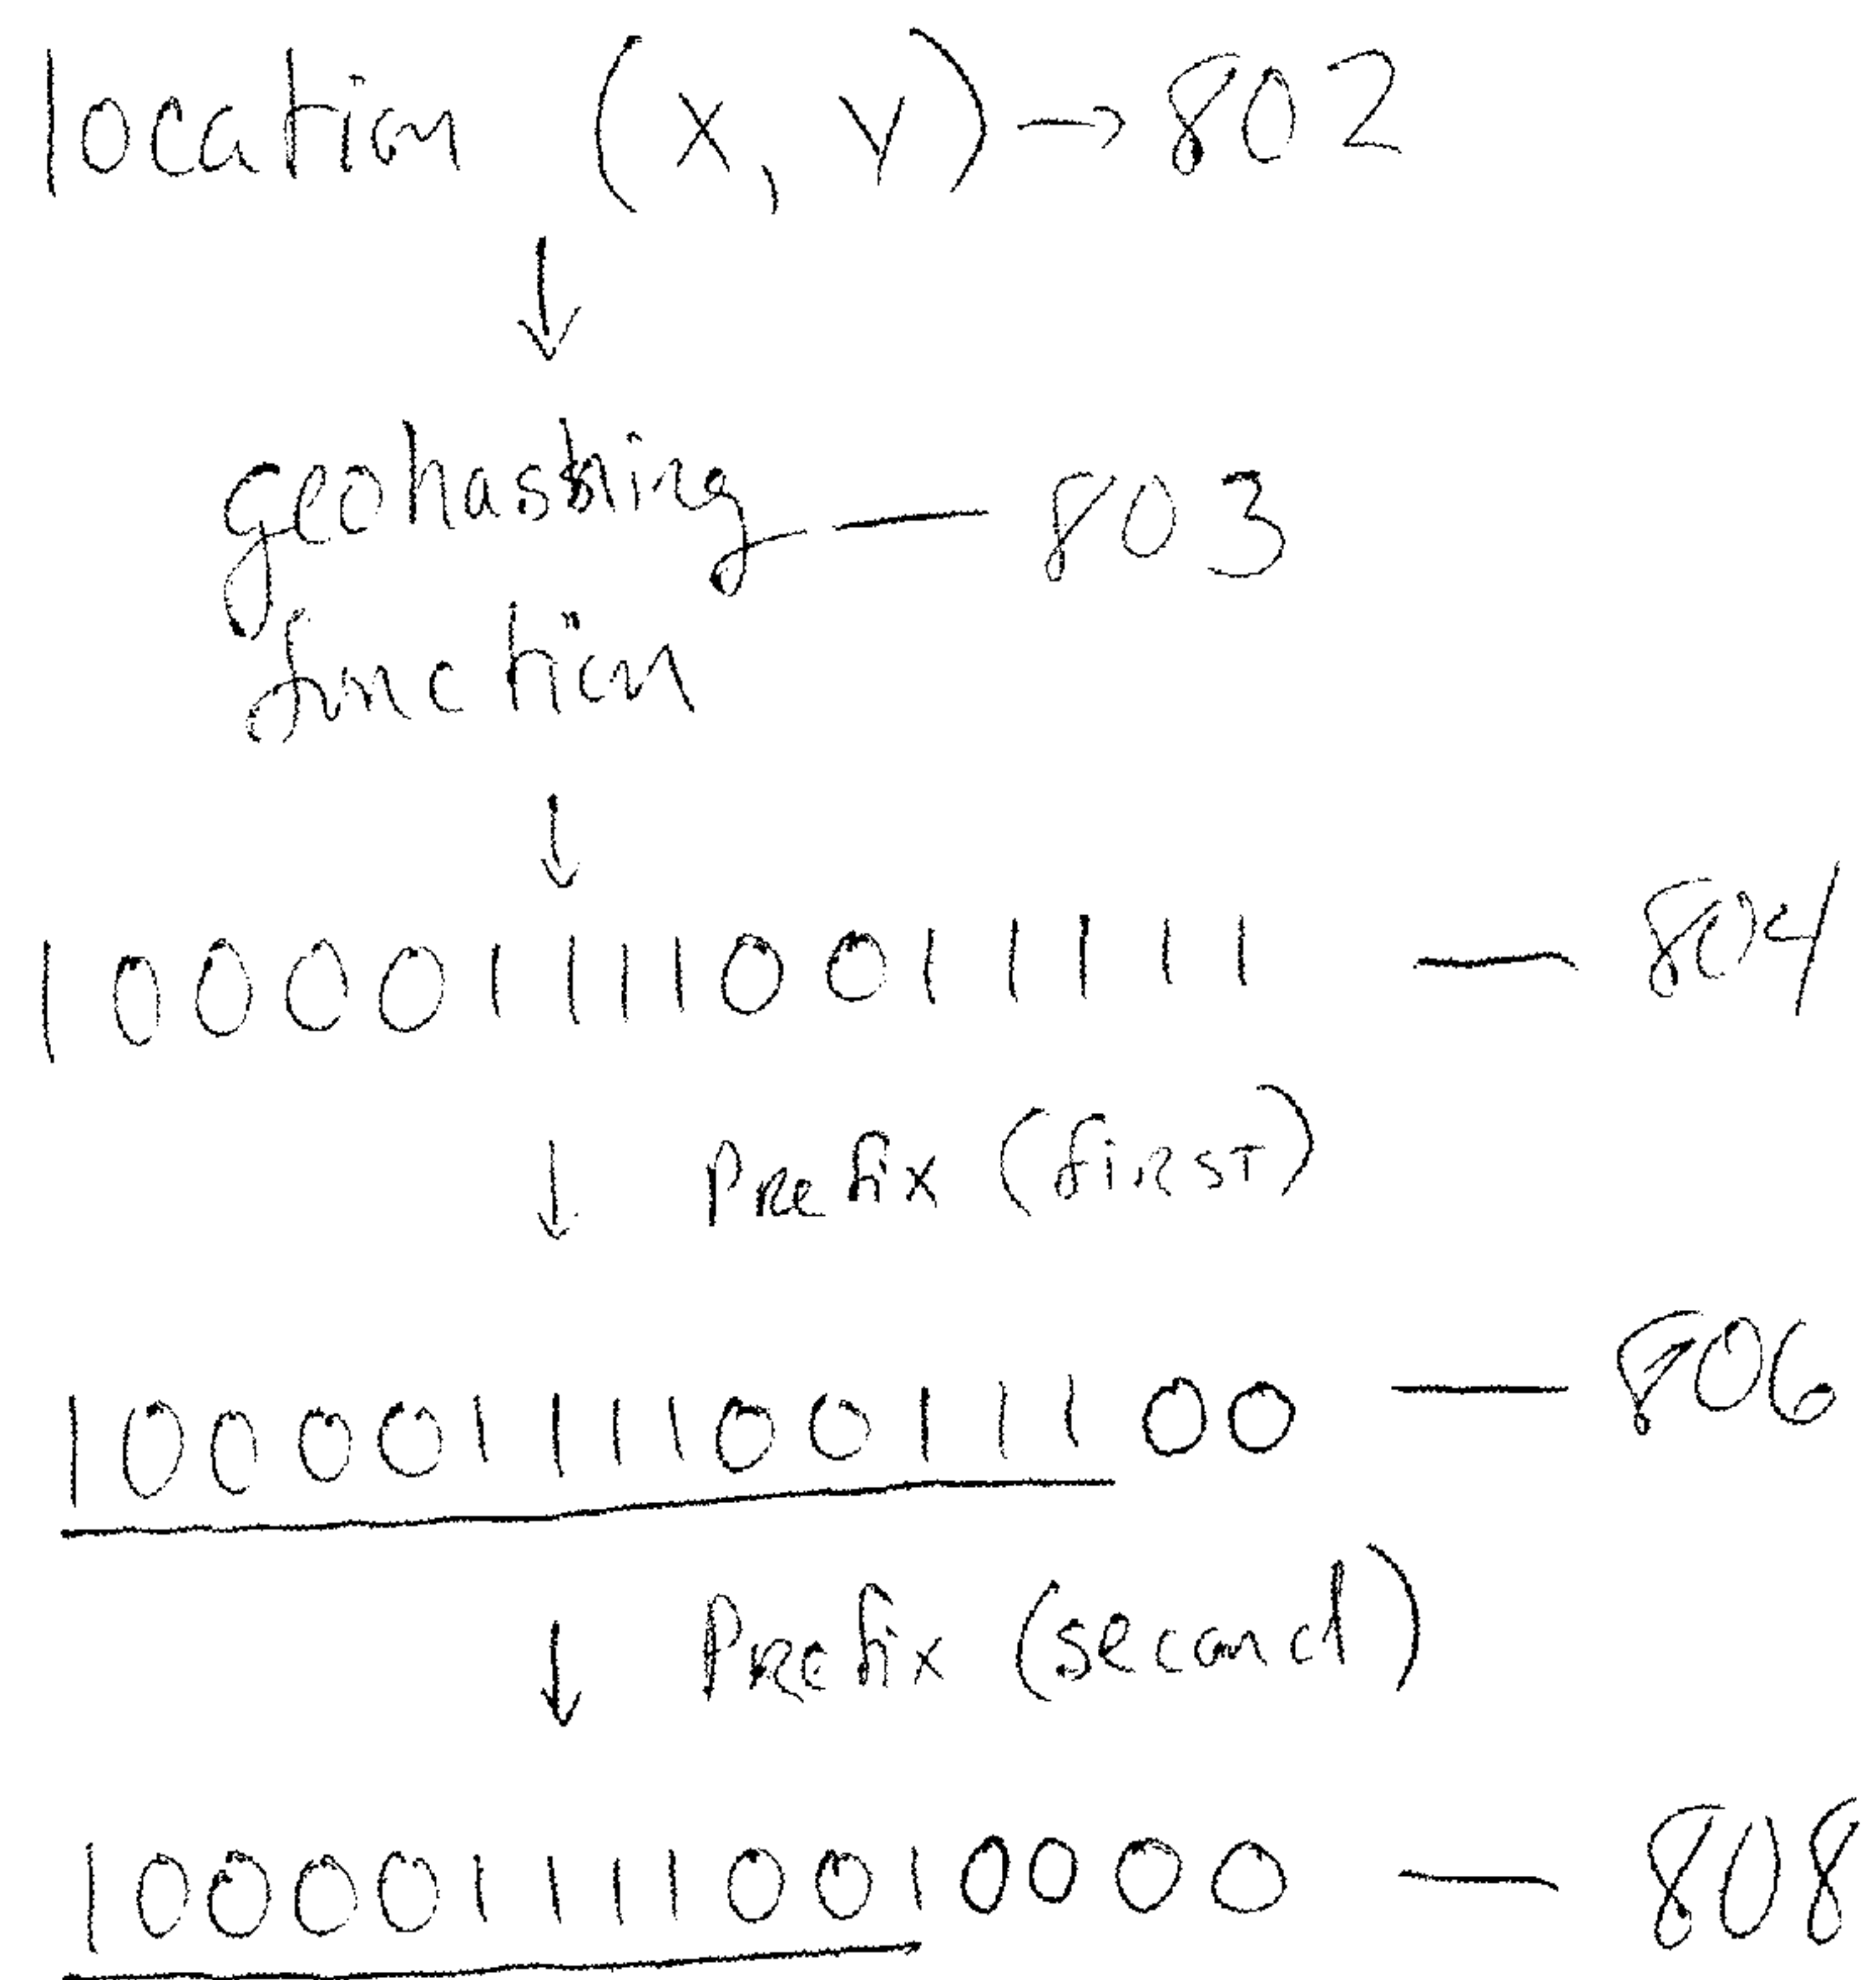 location (x, y) → 802
↓
geohashing — 803
function
↓
1000011110011111 — 804
↓ Prefix (first)
1000011110011100 — 806
↓ Prefix (second)
1000011110010000 — 808